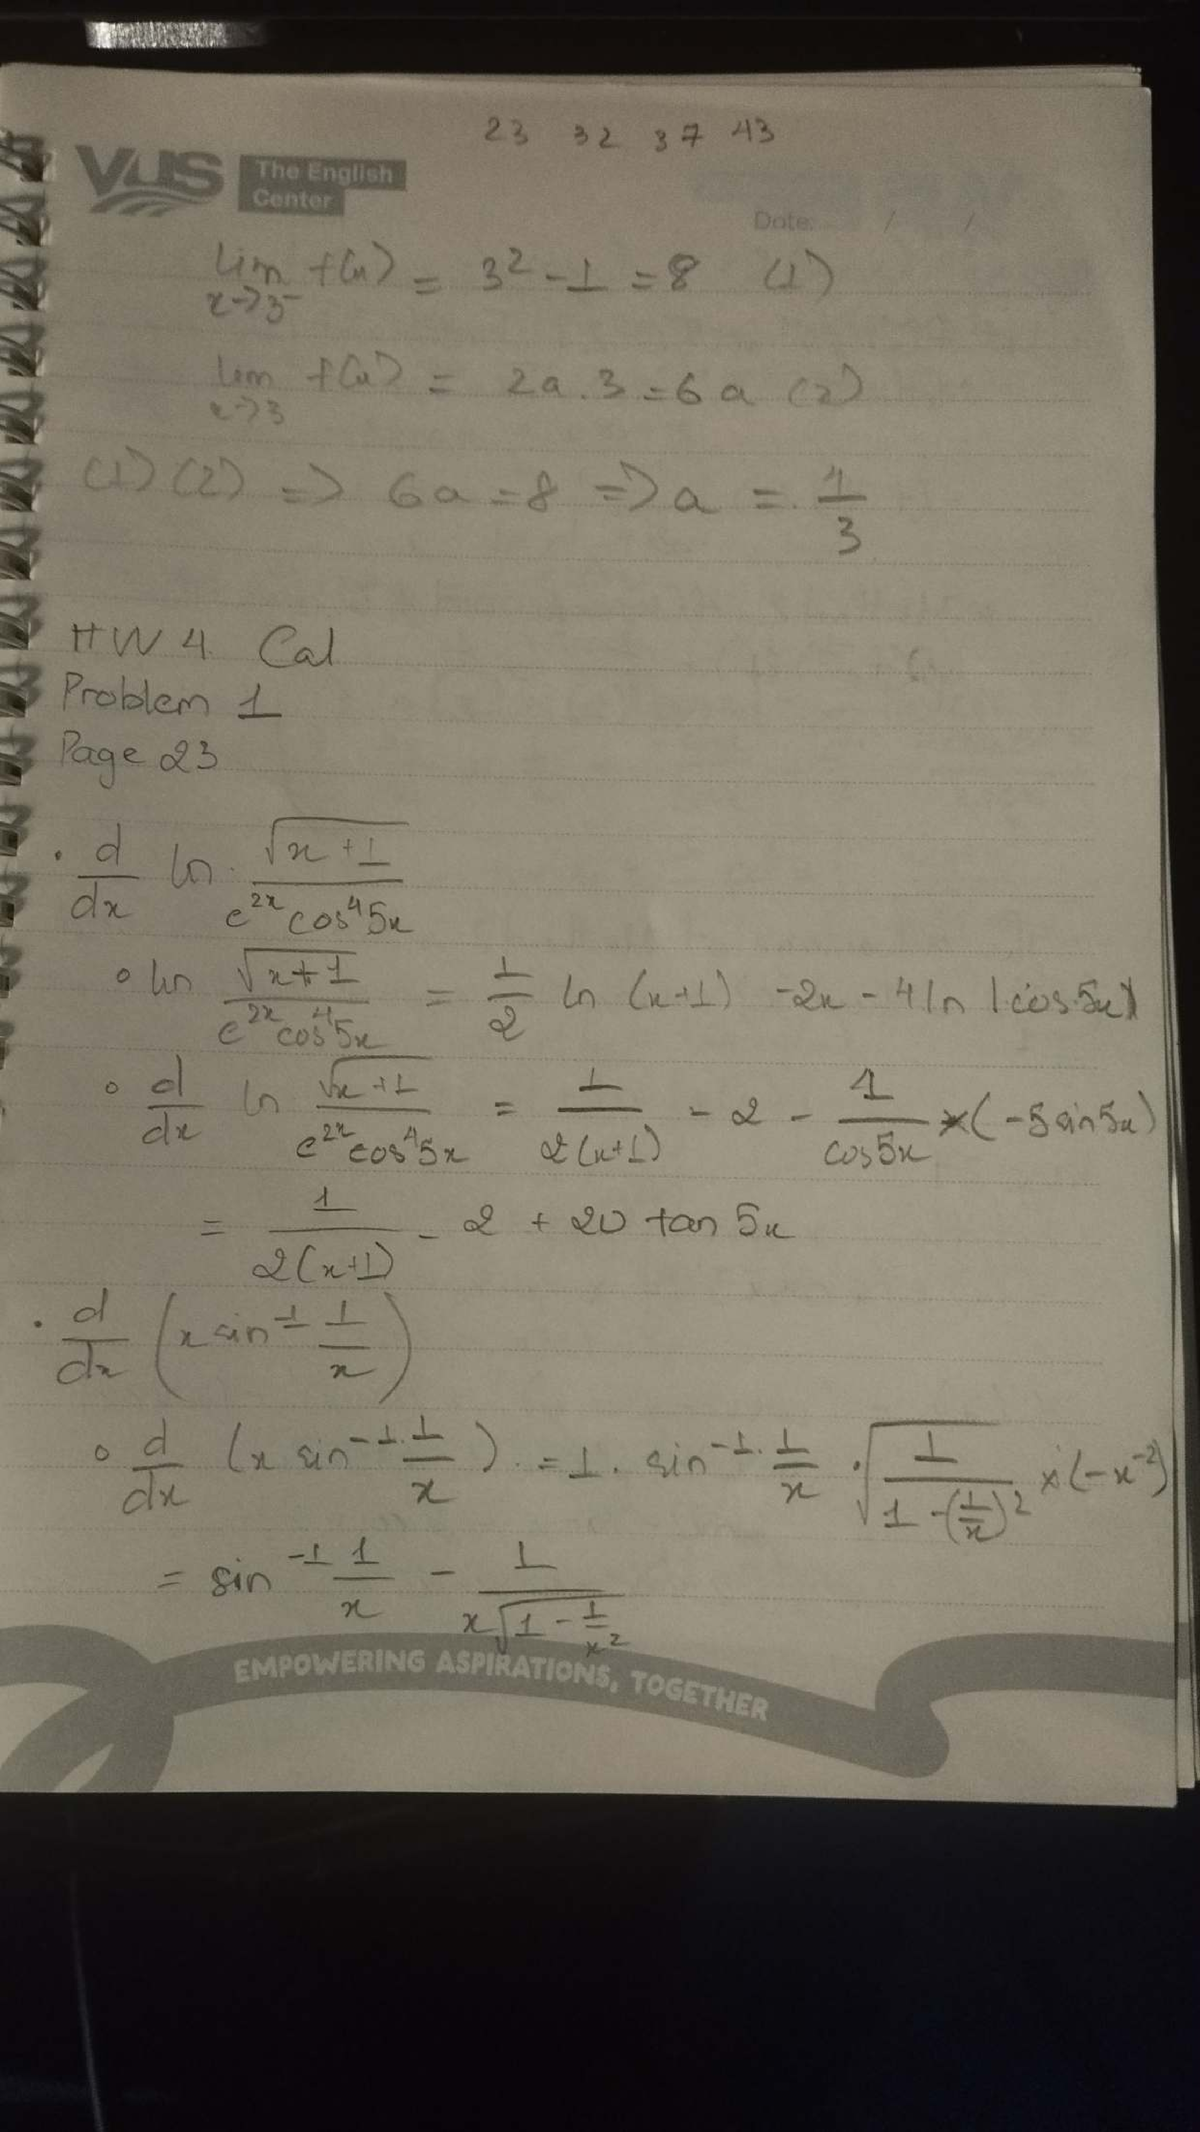 23 32 37 43
VUS The English Center
Date: / /
lim x→3⁻ f(x) = 3² - 1 = 8 (1)
lim x→3 f(x) = 2a . 3 = 6a (2)
(1) (2) => 6a = 8 => a = 4/3
HW 4. Cal
Problem 1
Page 23
. d/dx ln √(x+1) / (e^2x cos⁴5x)
∘ ln √(x+1) / (e^2x cos⁴5x) = 1/2 ln (x+1) - 2x - 4 ln |cos 5x|
∘ d/dx ln √(x+1) / (e^2x cos⁴5x) = 1/(2(x+1)) - 2 - 1/cos5x × (-5sin5x)
= 1/(2(x+1)) - 2 + 20 tan 5x
. d/dx (x sin⁻¹ 1/x)
∘ d/dx (x sin⁻¹ 1/x) = 1. sin⁻¹ 1/x . √(1/(1-(1/x)²)) × (-x⁻²)
= sin⁻¹ 1/x - 1/(x√(1 - 1/x²))
EMPOWERING ASPIRATIONS, TOGETHER